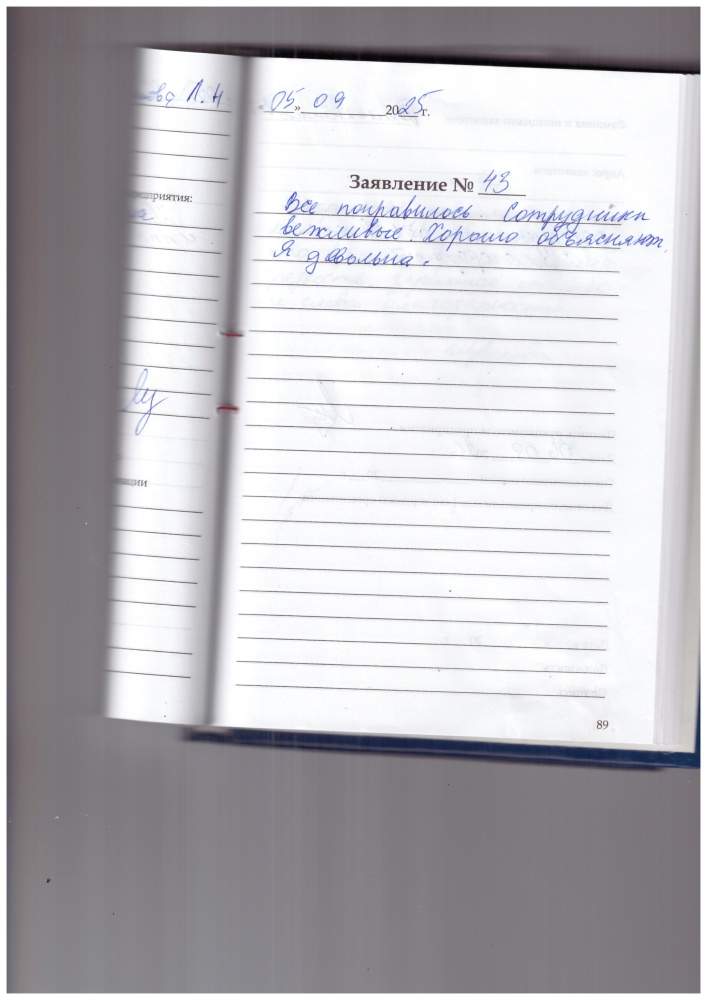 Л. Н
«05» 09 2025г.
Заявление № 43
Все понравилось. Сотрудники
вежливые. Хорошо объясняют.
Я довольна.
89